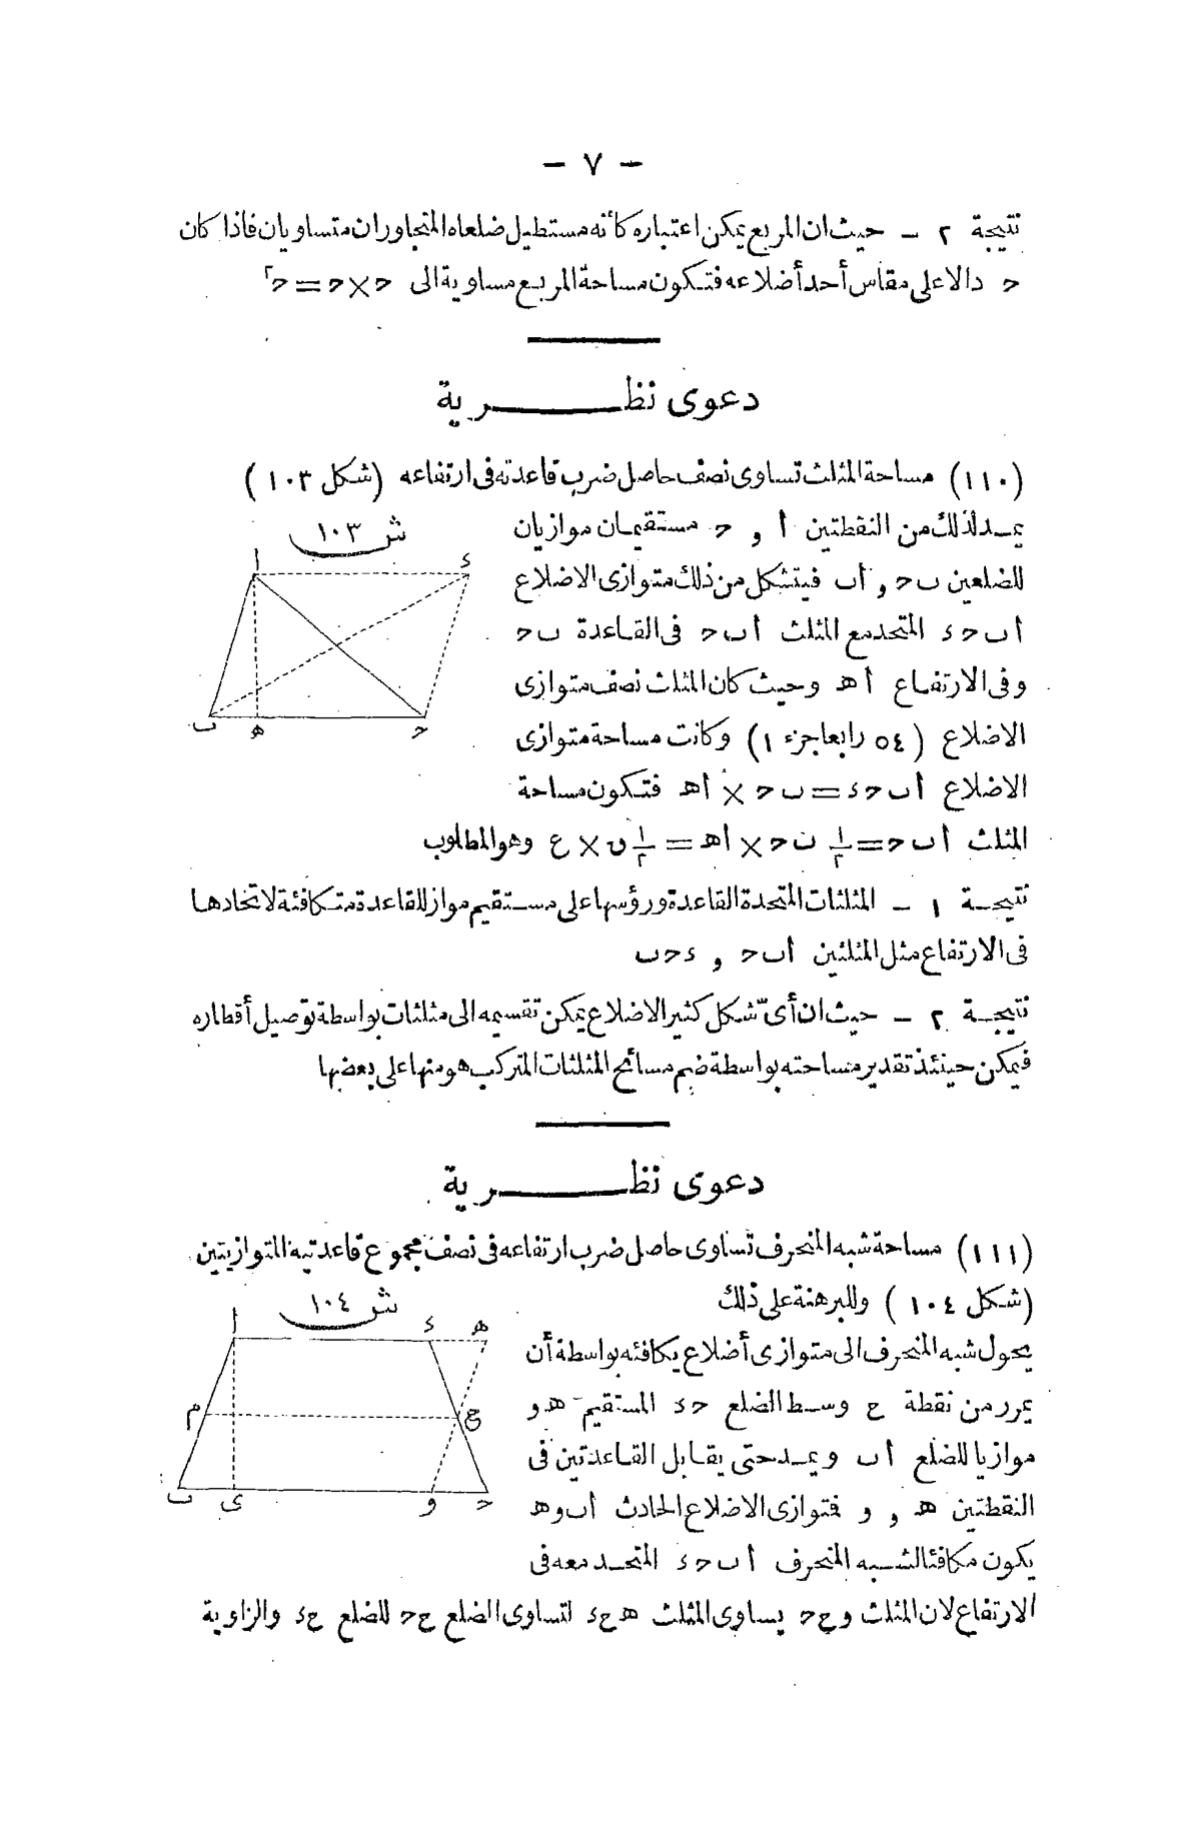 - ٧ -
نتيجة ٢ - حيث ان المربع يمكن اعتباره كأنه مستطيل ضلعاه المتجاوران متساويان فاذا كان
ح دالا على مقاس أحد أضلاعه فتكون مساحة المربع مساوية الى ح×ح=ح٢
دعوى نظرية
(١١٠) مساحة المثلث تساوى نصف حاصل ضرب قاعدته فى ارتفاعه (شكل ١٠٣)
يمد لذلك من النقطتين أ و ح مستقيمان موازيان
للضلعين ب ح و أب فيتشكل من ذلك متوازى الاضلاع
أ ب ح ء المتحد مع المثلث أ ب ح فى القاعدة ب ح
وفى الارتفاع أهـ وحيث كان المثلث نصف متوازى
الاضلاع (٥٤ رابعا جزء ١) وكانت مساحة متوازى
الاضلاع أ ب ح ء = ب ح × أهـ فتكون مساحة
المثلث أ ب ح = ١/٢ ب ح × أهـ = ١/٢ ق × ع وهو المطلوب
ش ١٠٣
ا ء
ب هـ ح
نتيجة ١ - المثلثات المتحدة القاعدة ورؤسها على مستقيم مواز للقاعدة متكافئة لاتحادها
فى الارتفاع مثل المثلثين أ ب ح و ء ح ب
نتيجة ٢ - حيث ان أىّ شكل كثير الاضلاع يمكن تقسيمه الى مثلثات بواسطة توصيل أقطاره
فيمكن حينئذ تقدير مساحته بواسطة ضم مسائح المثلثات المتركب هو منها على بعضها
دعوى نظرية
(١١١) مساحة شبه المنحرف تساوى حاصل ضرب ارتفاعه فى نصف مجموع قاعدتيه المتوازيتين
(شكل ١٠٤) وللبرهنة على ذلك
يحول شبه المنحرف الى متوازى أضلاع يكافئه بواسطة أن
يمرر من نقطة ع وسط الضلع ح ء المستقيم هـ و
موازيا للضلع أ ب ويمد حتى يقابل القاعدتين فى
النقطتين هـ و و فمتوازى الاضلاع الحادث أ ب و هـ
يكون مكافئا لشبه المنحرف أ ب ح ء المتحد معه فى
ش ١٠٤
ا ء هـ
م ع
ب ى و ح
الارتفاع لان المثلث و ع ح يساوى المثلث هـ ع ء لتساوى الضلع ع ح للضلع ع ء والزاوية